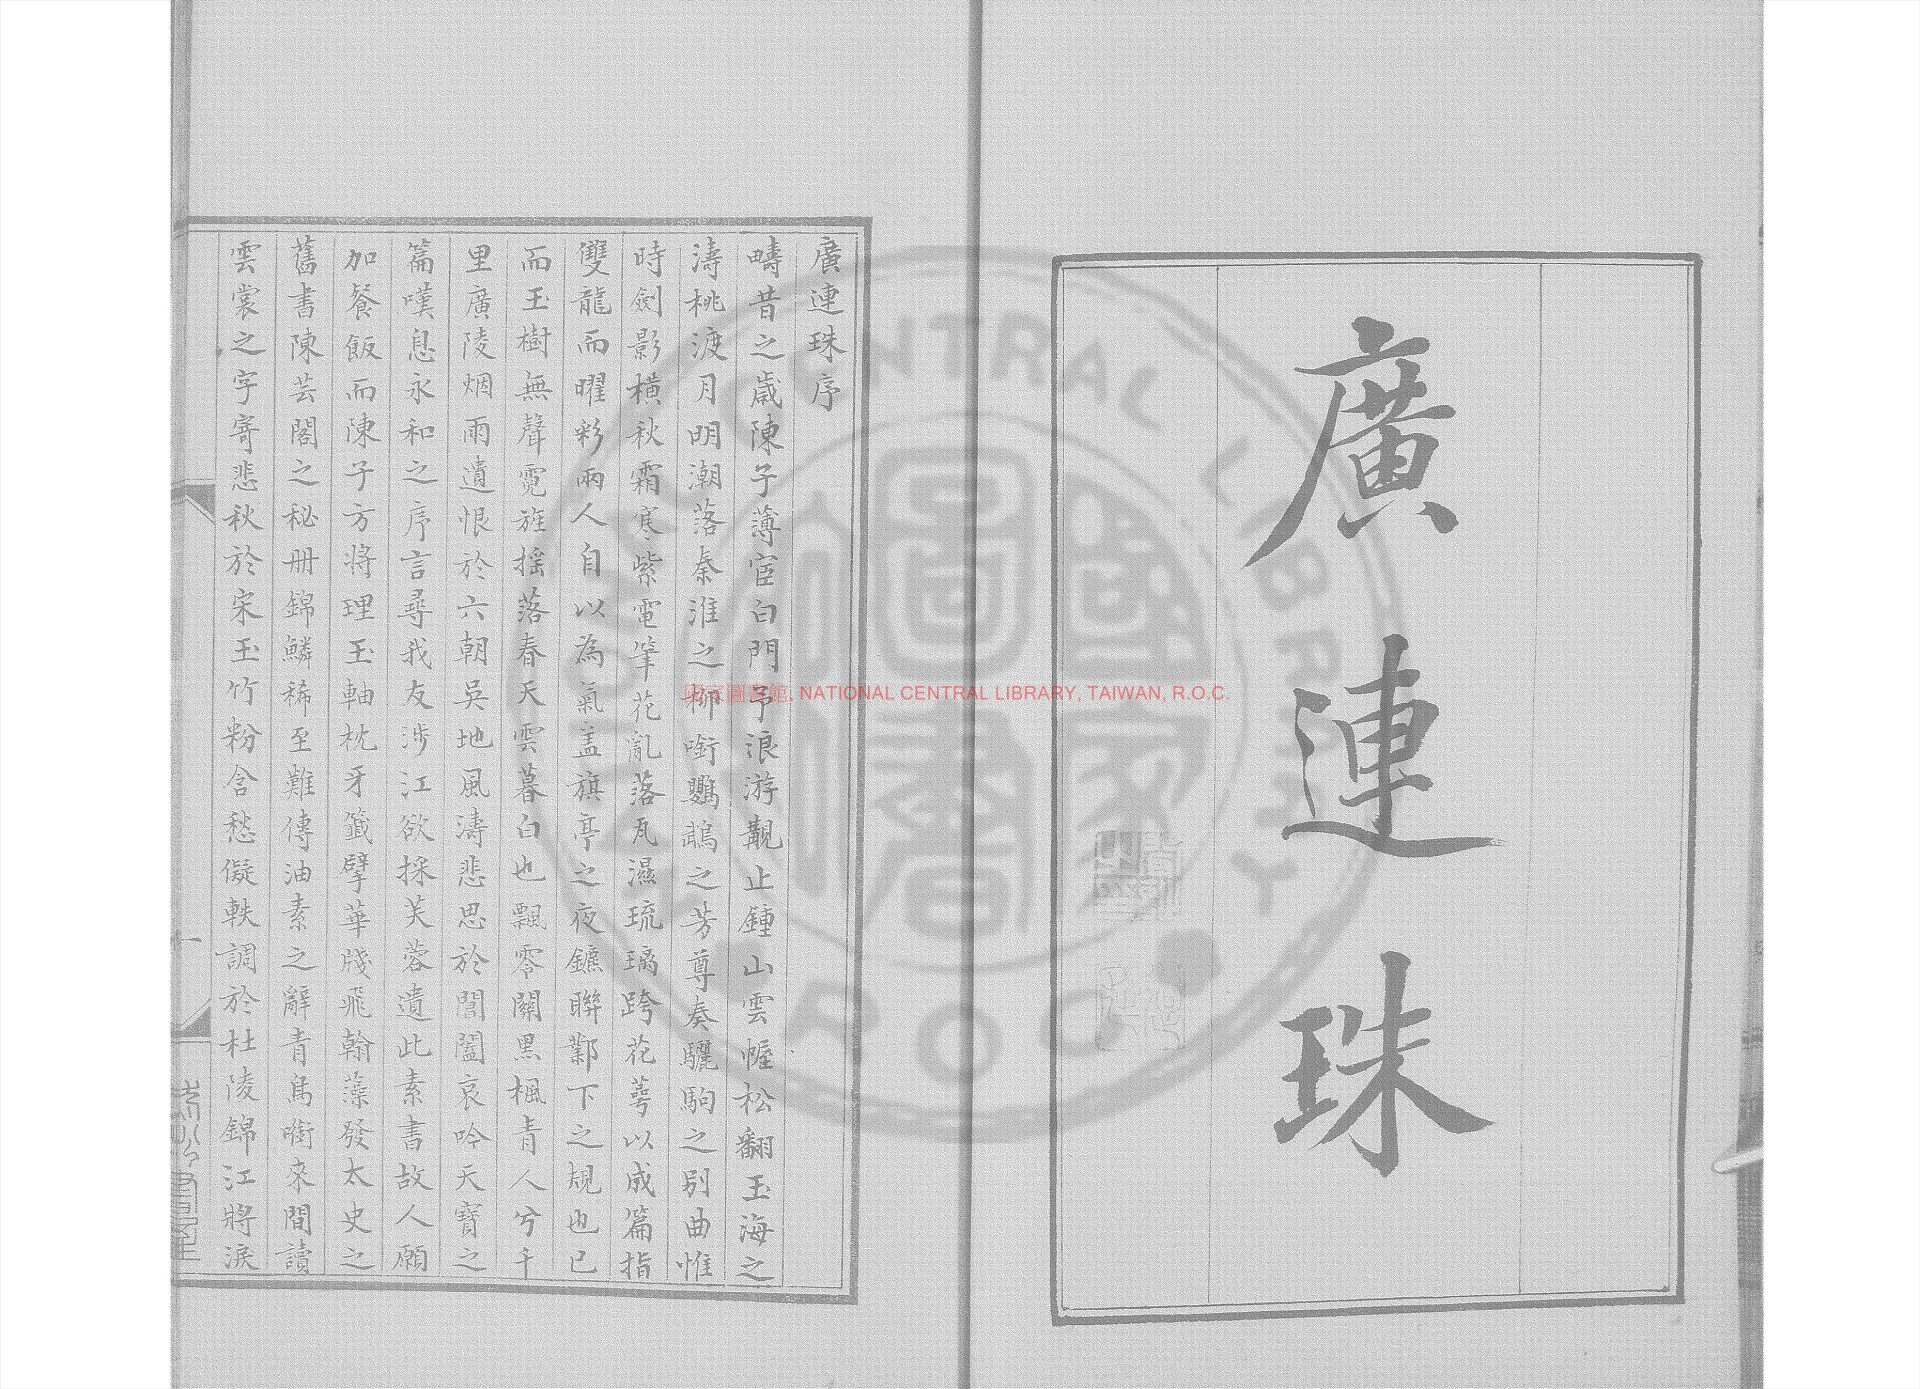 廣連珠
廣連珠序
疇昔之歲陳子薄宦白門予浪游覯止鍾山雲幄松翻玉海之
濤桃渡月明潮落秦淮之柳啣鸚鵡之芳尊奏驪駒之別曲惟
時劍影橫秋霜寒紫電筆花亂落瓦濕琉璃跨花萼以成篇指
雙龍而曜彩兩人自以為氣盖旗亭之夜鑣聯鄴下之規也已
而玉樹無聲霓旌搖落春天雲暮白也飄零關黑楓青人兮千
里廣陵烟雨遺恨於六朝吳地風濤悲思於閶闔哀吟天寶之
篇嘆息永和之序言尋我友涉江欲採芙蓉遺此素書故人願
加餐飯而陳子方將理玉軸枕牙籤擘華牋飛翰藻發太史之
舊書陳芸閣之秘冊錦鱗稀至難傳油素之辭青鳥啣來閒讀
雲裳之字寄悲秋於宋玉竹粉含愁儗軼調於杜陵錦江將淚
一
NATIONAL CENTRAL LIBRARY, TAIWAN, R.O.C.
國家圖書館
NATIONAL CENTRAL LIBRARY
R O C